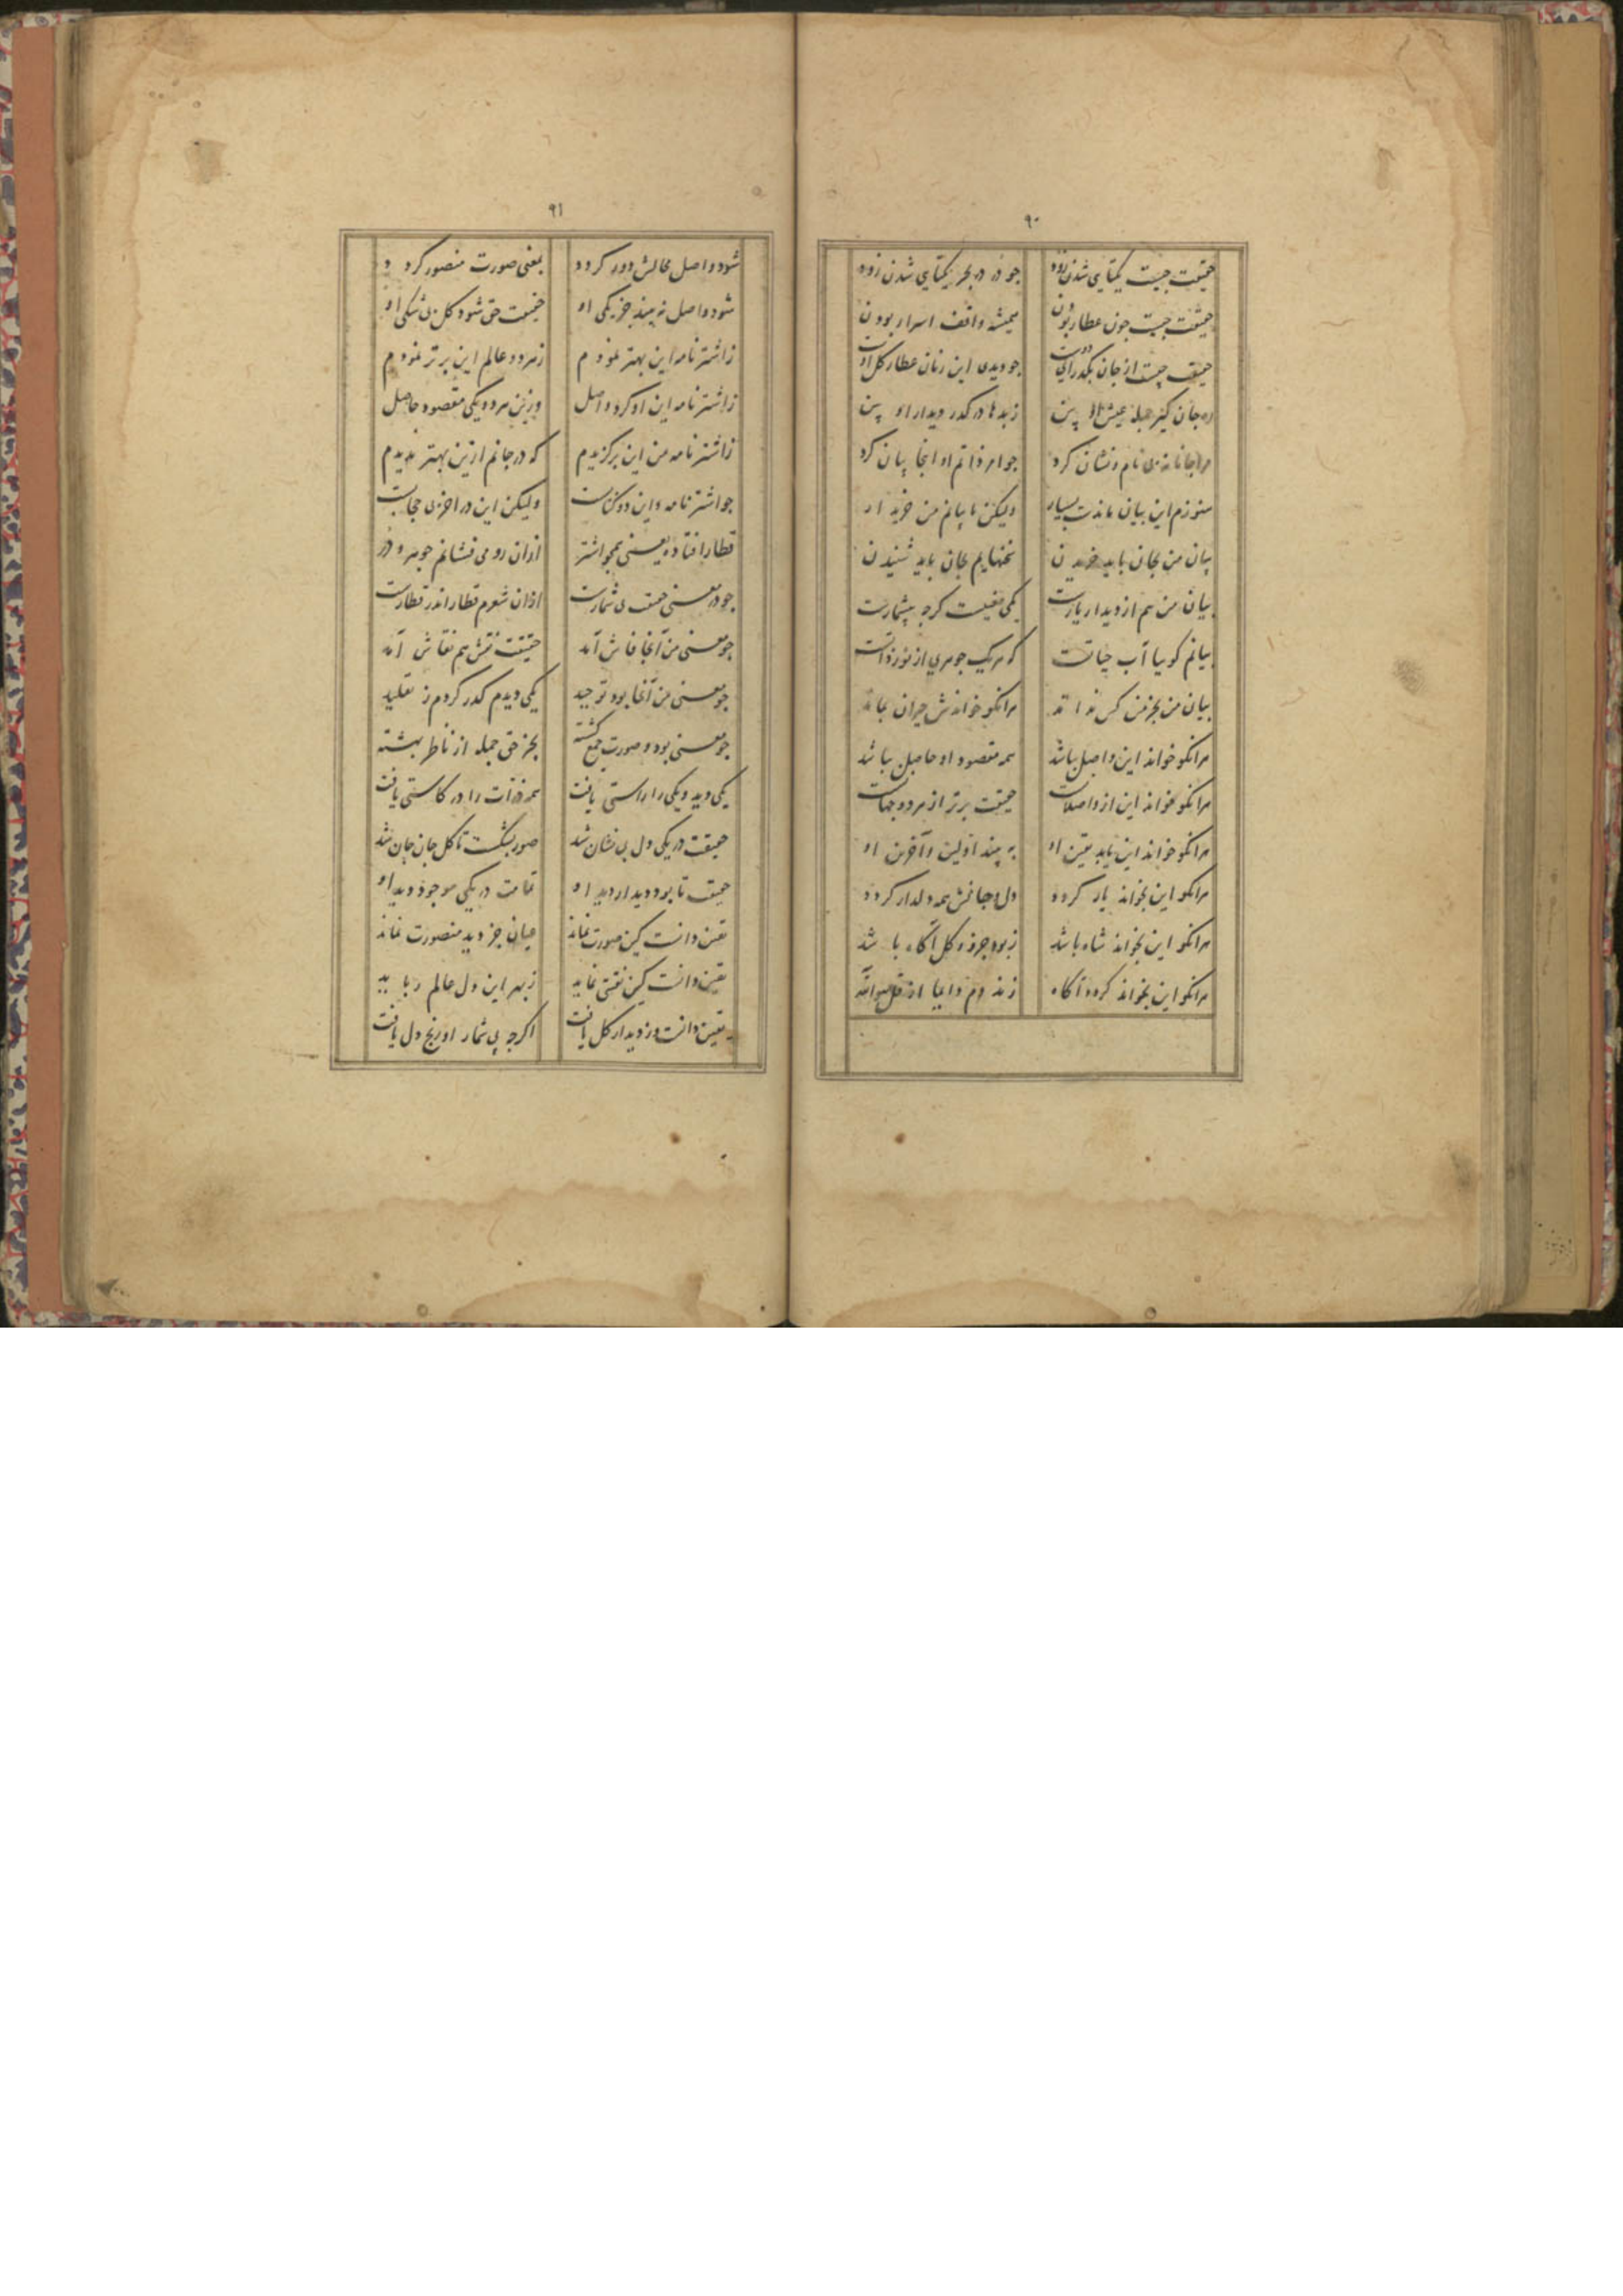 ۹۰
حقیقت چیست یکتایی شدن زود جو در در بحر یکتایی شدن زود
حقیقت چیست چون عطار بودن همیشه واقف اسرار بودن
حقیقت چیست از جان جو دیدی این زنان عطار کل اوست
ره جان کیر جمله عیش او بین ز بدها درکدر دیدار او بین
مرا جانانه بی نام و نشان کرد جواهر ذاتم او اینجا بیان کرد
هنوزم این بیان ماندست بسیار ولیکن تا بیانم من خریدار
بیان من بجان باید خریدن سخنهایم بجان باید شنیدن
بیان من هم از دیدار یارست یکی معنیست کرچه بیشمارست
بیانم کوییا آب حیاتست که هر یک جوهری از نور ذاتست
بیان من بجز من کس نداند هر آنکو خواندش حیران بماند
هر آنکو خواند این واصل بباشد همه مقصود او حاصل بباشد
هر آنکو خواند این از واصلانست حقیقت برتر از هر دو جهانست
هر آنکو خواند این یابد یقین او به بیند اولین و آخرین او
هر آنکو این بخواند یار کردد دل و جانش همه دلدار کردد
هر آنکو این بخواند شاه باشد ز بود جزو و کل آکاه باشد
هر آنکو این بخواند کردد آکاه زند دم دایما از قل هو الله
۹۱
شود واصل محالش دور کردد بمعنی صورت منصور کردد
شود واصل نه بیند جز یکی او حقیقت حق شود کل بی شکی او
ز اشترنامه این بهتر نمودم ز هر دو عالم این برتر نمودم
ز اشترنامه این او کرد واصل وزین هر دو یکی مقصود حاصل
ز اشترنامه من این برکزیدم که در جانم ازین بهتر ندیدم
جو اشترنامه و این دو کتابست ولیکن این در آخر بی حجابست
قطار افتاده معنی همجو اشتر ازان رو می فشانم جوهر و در
جو در معنی حقیقت بی شمارست ازان شعرم قطار اندر قطارست
جو معنی من آنجا فاش آمد حقیقت نقش هم نقاش آمد
جو معنی من آنجا بود توحید یکی دیدم کدر کردم ز تقلید
جو معنی بود و صورت جمع کشته بجز حق جمله از خاطر بهشته
یکی دید و یکی را راستی یافت همه ذرات را در کاستی یافت
حقیقت در یکی دل بی نشان شد صور بشکست تا کل جان جان شد
حقیقت تا بود دیدار دید او تمامت در یکی موجود دید او
یقین دانست کین صورت نماند عیان جز دید منصورت نماند
یقین دانست کین نقشی نماید ز بهر این دل عالم رباید
یقین دانست وز دیدار کل یافت اکرچه بی شمار او رنج دل یافت